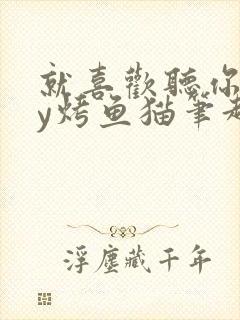 就喜歡聽你
y烤魚猫筆趣
浮塵藏千年